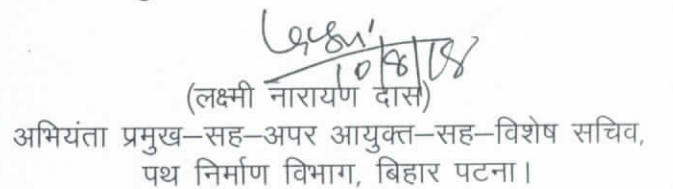 10/8/18
(लक्ष्मी नारायण दास)
अभियंता प्रमुख–सह–अपर आयुक्त–सह–विशेष सचिव,
पथ निर्माण विभाग, बिहार पटना।